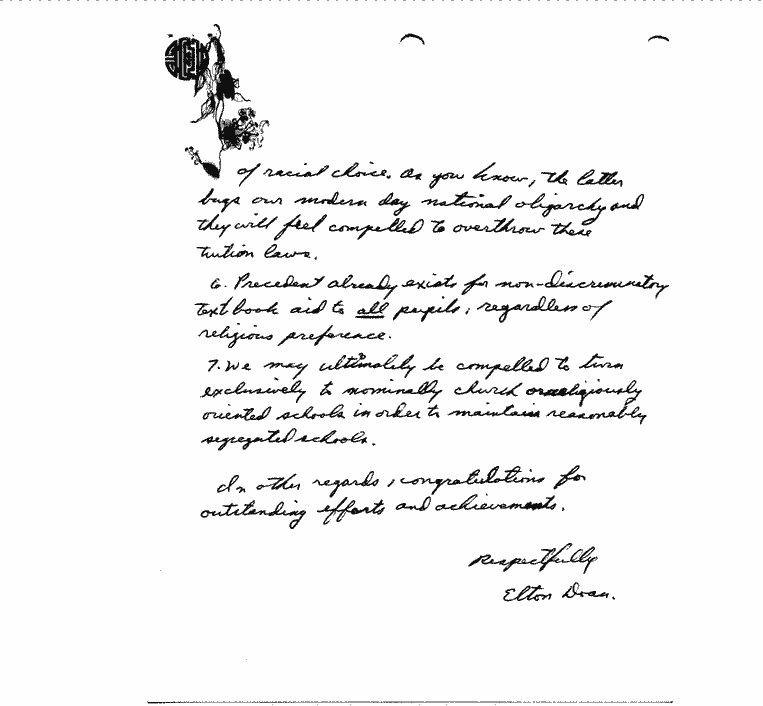 of racial choice. As you know, the latter
bugs our modern day national oligarchy and
they will feel compelled to overthrow these
tuition laws.
6. Precedent already exists for non-discriminatory
textbook aid to all pupils, regardless of
religious preference.
7. We may ultimately be compelled to turn
exclusively to nominally church or religiously
oriented schools in order to maintain reasonably
segregated schools.
In other regards, congratulations for
outstanding efforts and achievements.
Respectfully
Elton Doan.